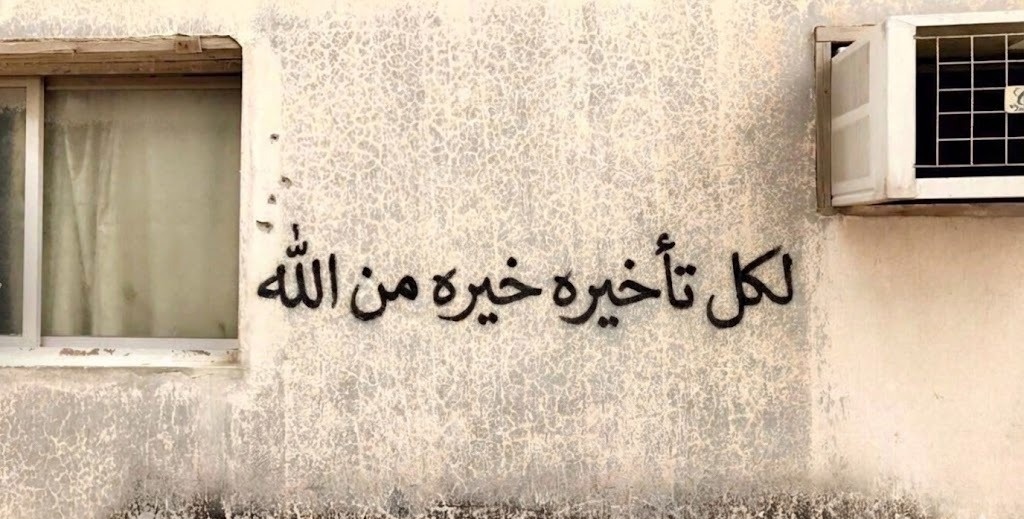 لكل تأخيره خيره من الله